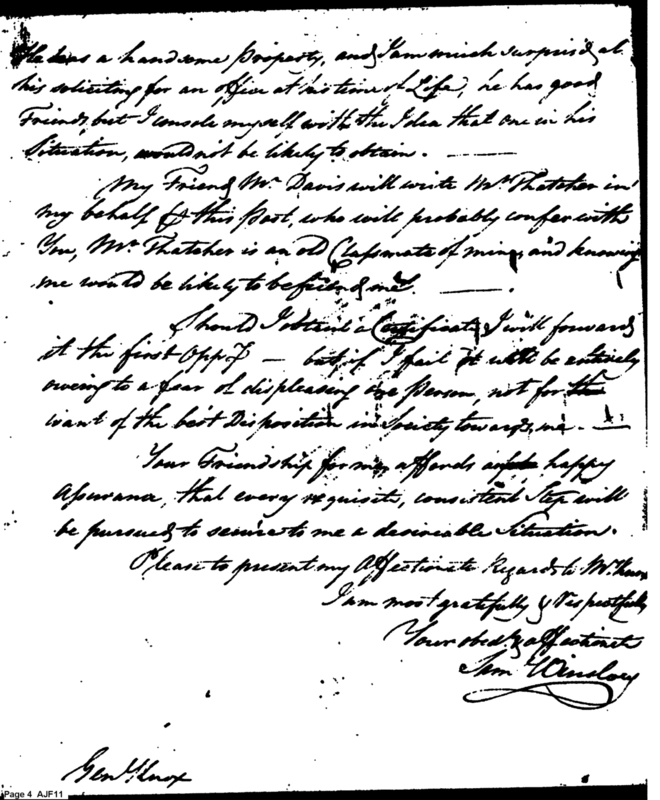 He has a handsome Property, and I am much surprised at
his soliciting for an office at his time of Life, he has good
Friends, but I console myself with the Idea that one in his
Situation, would not be likely to obtain. —
My Friend Mr. Davis will write Mr. Thatcher in
my behalf & this Post, who will probably confer with
You, Mr. Thatcher is an old Classmate of mine, and knowing
me would be likely to befriend me. —
Should I obtain a Certificate, I will forward
it the first Oppy — but if I fail it will be entirely
owing to a fear of displeasing one Person, not for the
want of the best Disposition in Society towards me. —
Your Friendship for me, affords happy
Assurance, that every requisite, consistent Step will
be pursued to secure to me a desireable Situation.
Please to present my Affectionate Regards to Mrs. Knox
I am most gratefully & respectfully
Your obedt. & affectionate
Sam Winslow
Genl. Knox
Page 4 AJF11